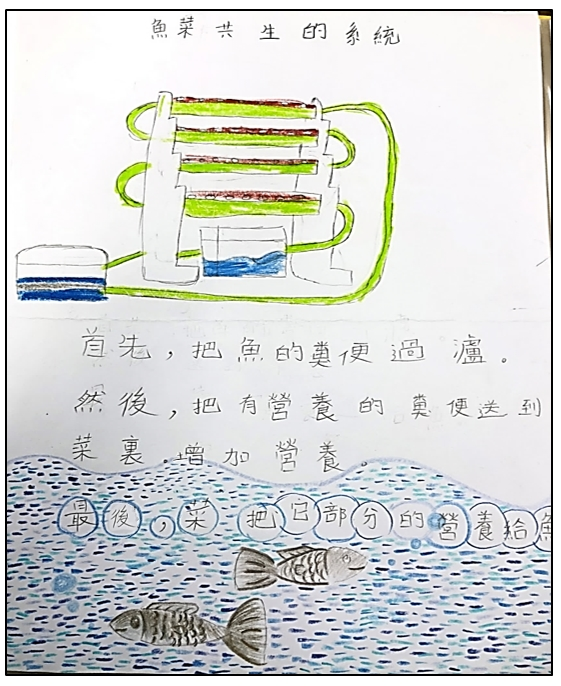 魚菜共生的系統
首先，把魚的糞便過瀘。
然後，把有營養的糞便送到
菜裏.增加營養。
最後，菜把它部分的營養給魚